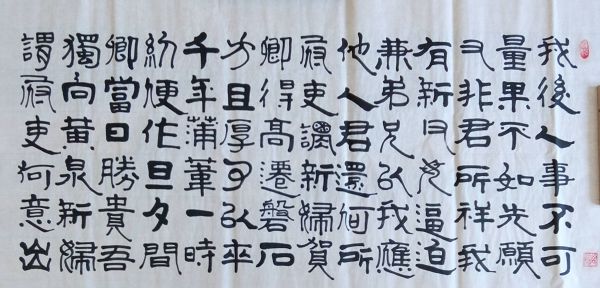 我後人事不可
量果不如先願
又非君所祥我
有新父母逼迫
兼弟兄以我應
他人君還何所
府吏謂新婦賀
卿得高遷磐石
方且厚可以卒
千年蒲葦一時
紉便作旦夕間
卿當日勝貴吾
獨向黄泉新婦
謂府吏何意出